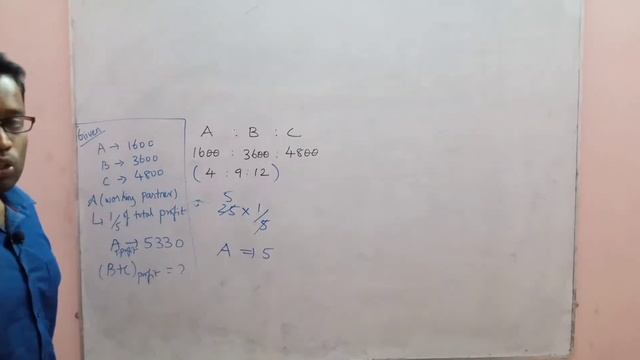 Given
A → 1600
B → 3600
C → 4800
A (working partner)
↳ 1/5 of total profit
A profit → 5330
(B+C) profit = ?
A : B : C
1600 : 3600 : 4800
( 4 : 9 : 12 )
= 25 × 1/5
5
A ⇒ 5